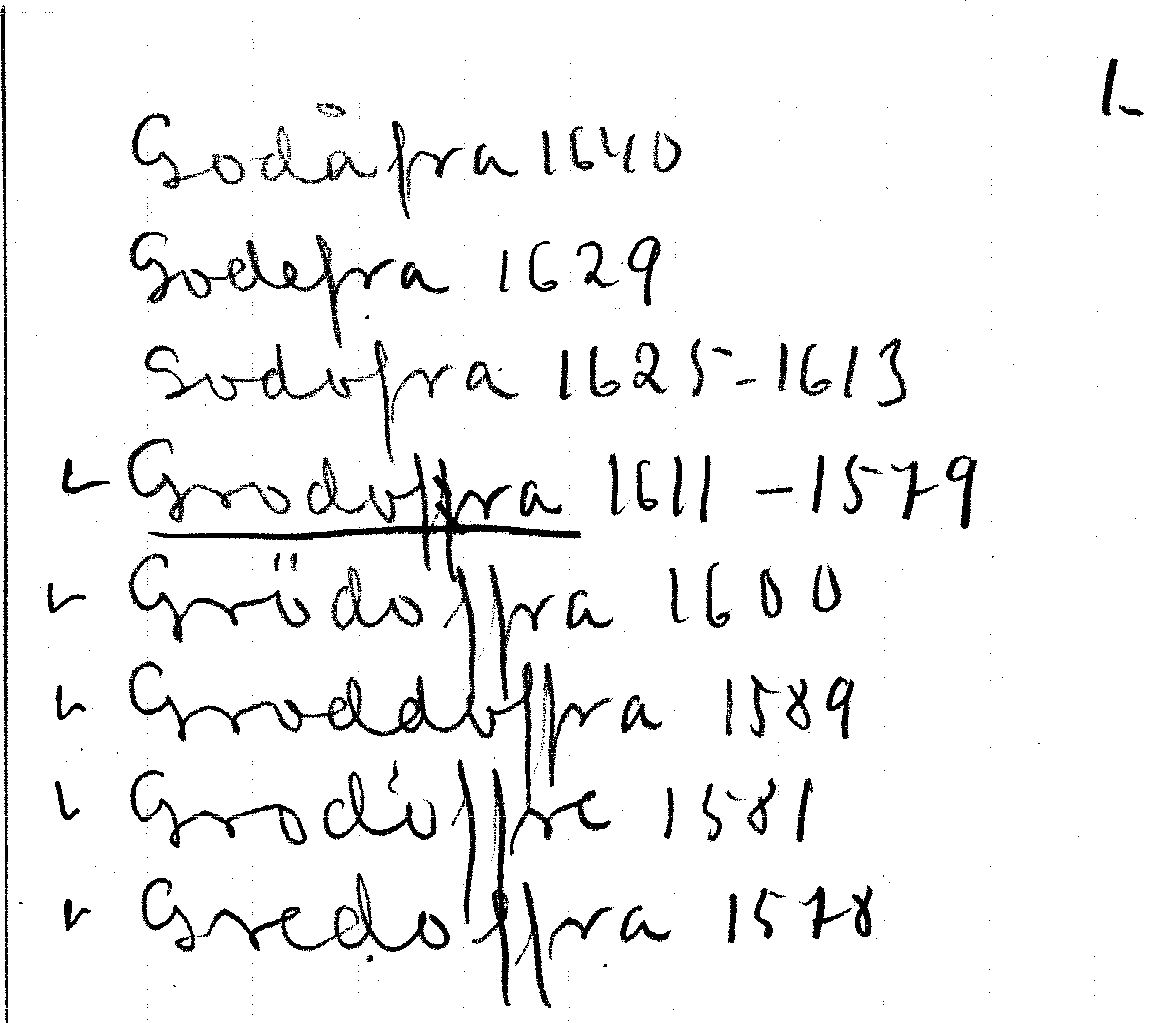 1.
Godåfra 1640
Godefra 1629
Godofra 1625-1613
✓ Grodoffra 1611 - 1579
✓ Grödoffra 1600
✓ Groddoffra 1589
✓ Grodóffre 1581
✓ Gredoffra 1578